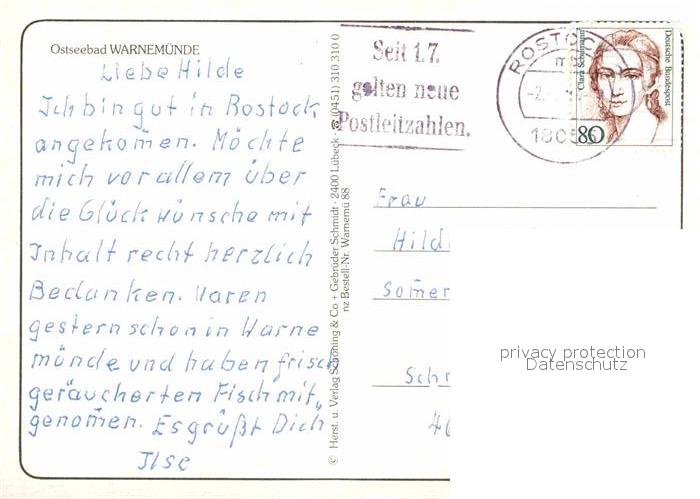 Ostseebad WARNEMÜNDE
Liebe Hilde
Ich bin gut in Rostock
angekom̄en. Möchte
mich vor allem über
die Glückwünsche mit
Inhalt recht herzlich
Bedanken. Waren
gestern schon in Warne
münde und haben frisch
geräucherten Fisch mit„
genom̄en. Es grüßt Dich
Ilse
© Herst. u. Verlag Schöning & Co + Gebrüder Schmidt · 2400 Lübeck · ☎ (0451) 310 310 0
nz Bestell-Nr. Warnemü 88
Seit 1.7.
gelten neue
Postleitzahlen.
ROSTOCK
Clara Schumann
Deutsche Bundespost
80
Frau
Hild
Somer
Schr
privacy protection
Datenschutz